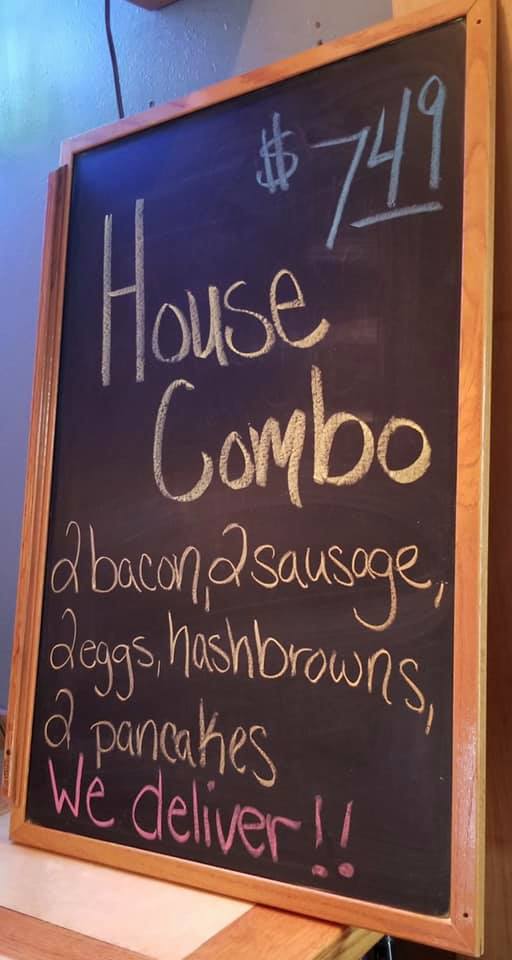 $ 749
House
Combo
2 bacon, 2 sausage,
2 eggs, hashbrowns,
2 pancakes
We deliver!!